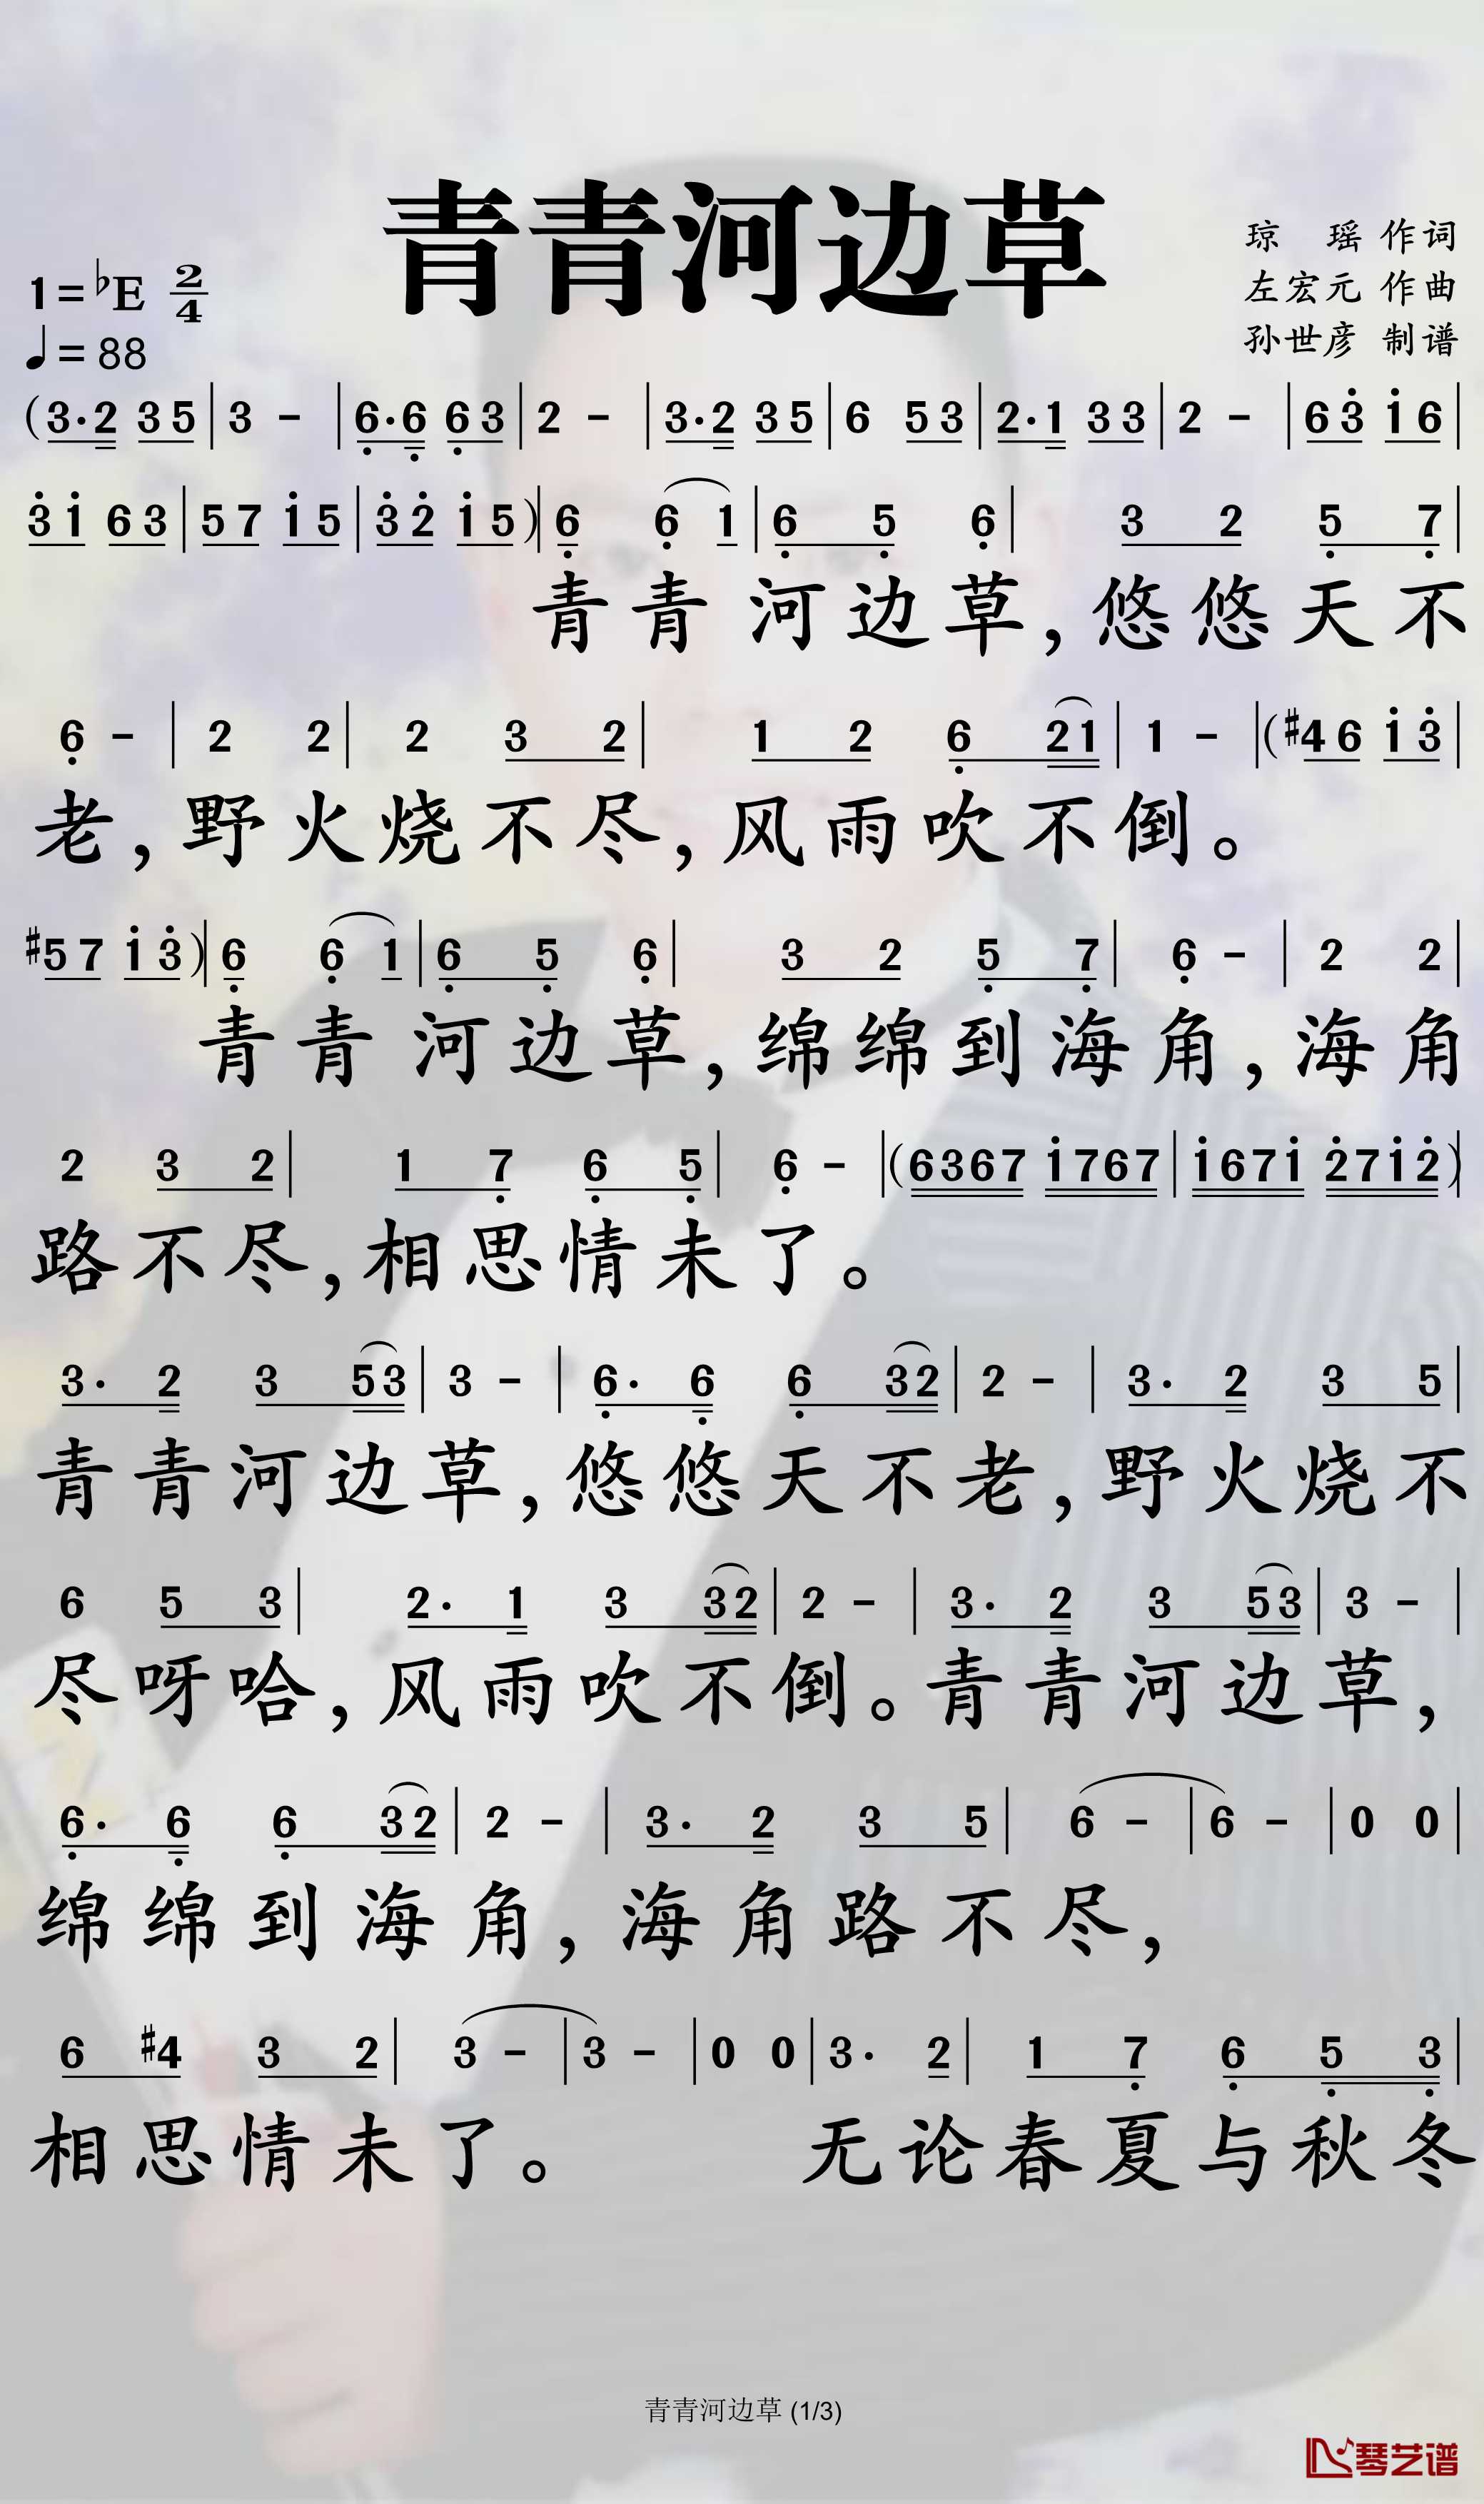 青青河边草
琼 瑶 作词
左宏元 作曲
孙世彦 制谱
1=♭E 2/4
♩=88
(3·2 35|3 -|6·6 63|2 -|3·2 35|6 53|2·1 33|2 -|63 16|
31 63|57 15|32 15)|6 6 1|6 5 6|3 2 5 7|
青青河边草,悠悠天不
6 -|2 2|2 3 2|1 2 6 21|1 -|(#46 13|
老,野火烧不尽,风雨吹不倒。
#57 13)|6 6 1|6 5 6|3 2 5 7|6 -|2 2|
青青河边草,绵绵到海角,海角
2 3 2|1 7 6 5|6 -|(6367 1767|1671 2712)|
路不尽,相思情未了。
3· 2 3 53|3 -|6· 6 6 32|2 -|3· 2 3 5|
青青河边草,悠悠天不老,野火烧不
6 5 3|2· 1 3 32|2 -|3· 2 3 53|3 -|
尽呀哈,风雨吹不倒。青青河边草,
6· 6 6 32|2 -|3· 2 3 5|6 -|6 -|0 0|
绵绵到海角,海角路不尽,
6 #4 3 2|3 -|3 -|0 0|3· 2|1 7 6 5 3|
相思情未了。 无论春夏与秋冬
青青河边草 (1/3)
琴艺谱